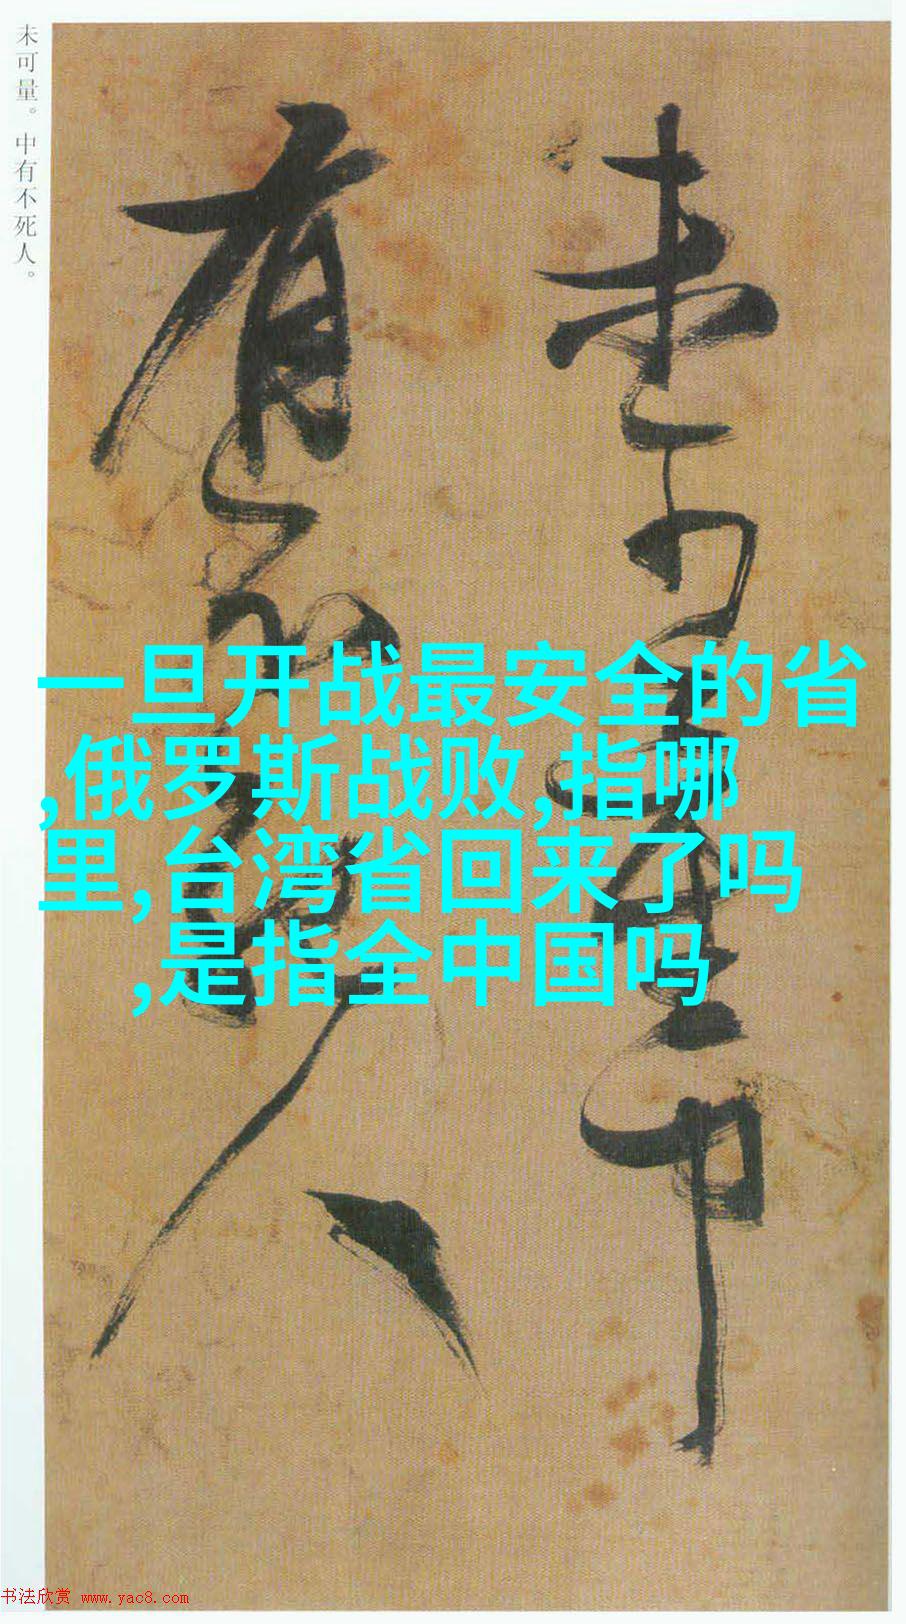 未可量。中有不死人。
一旦开战最安全的省
,俄罗斯战败,指哪
里,台湾省回来了吗
,是指全中国吗
书法欣赏 www.yac8.com